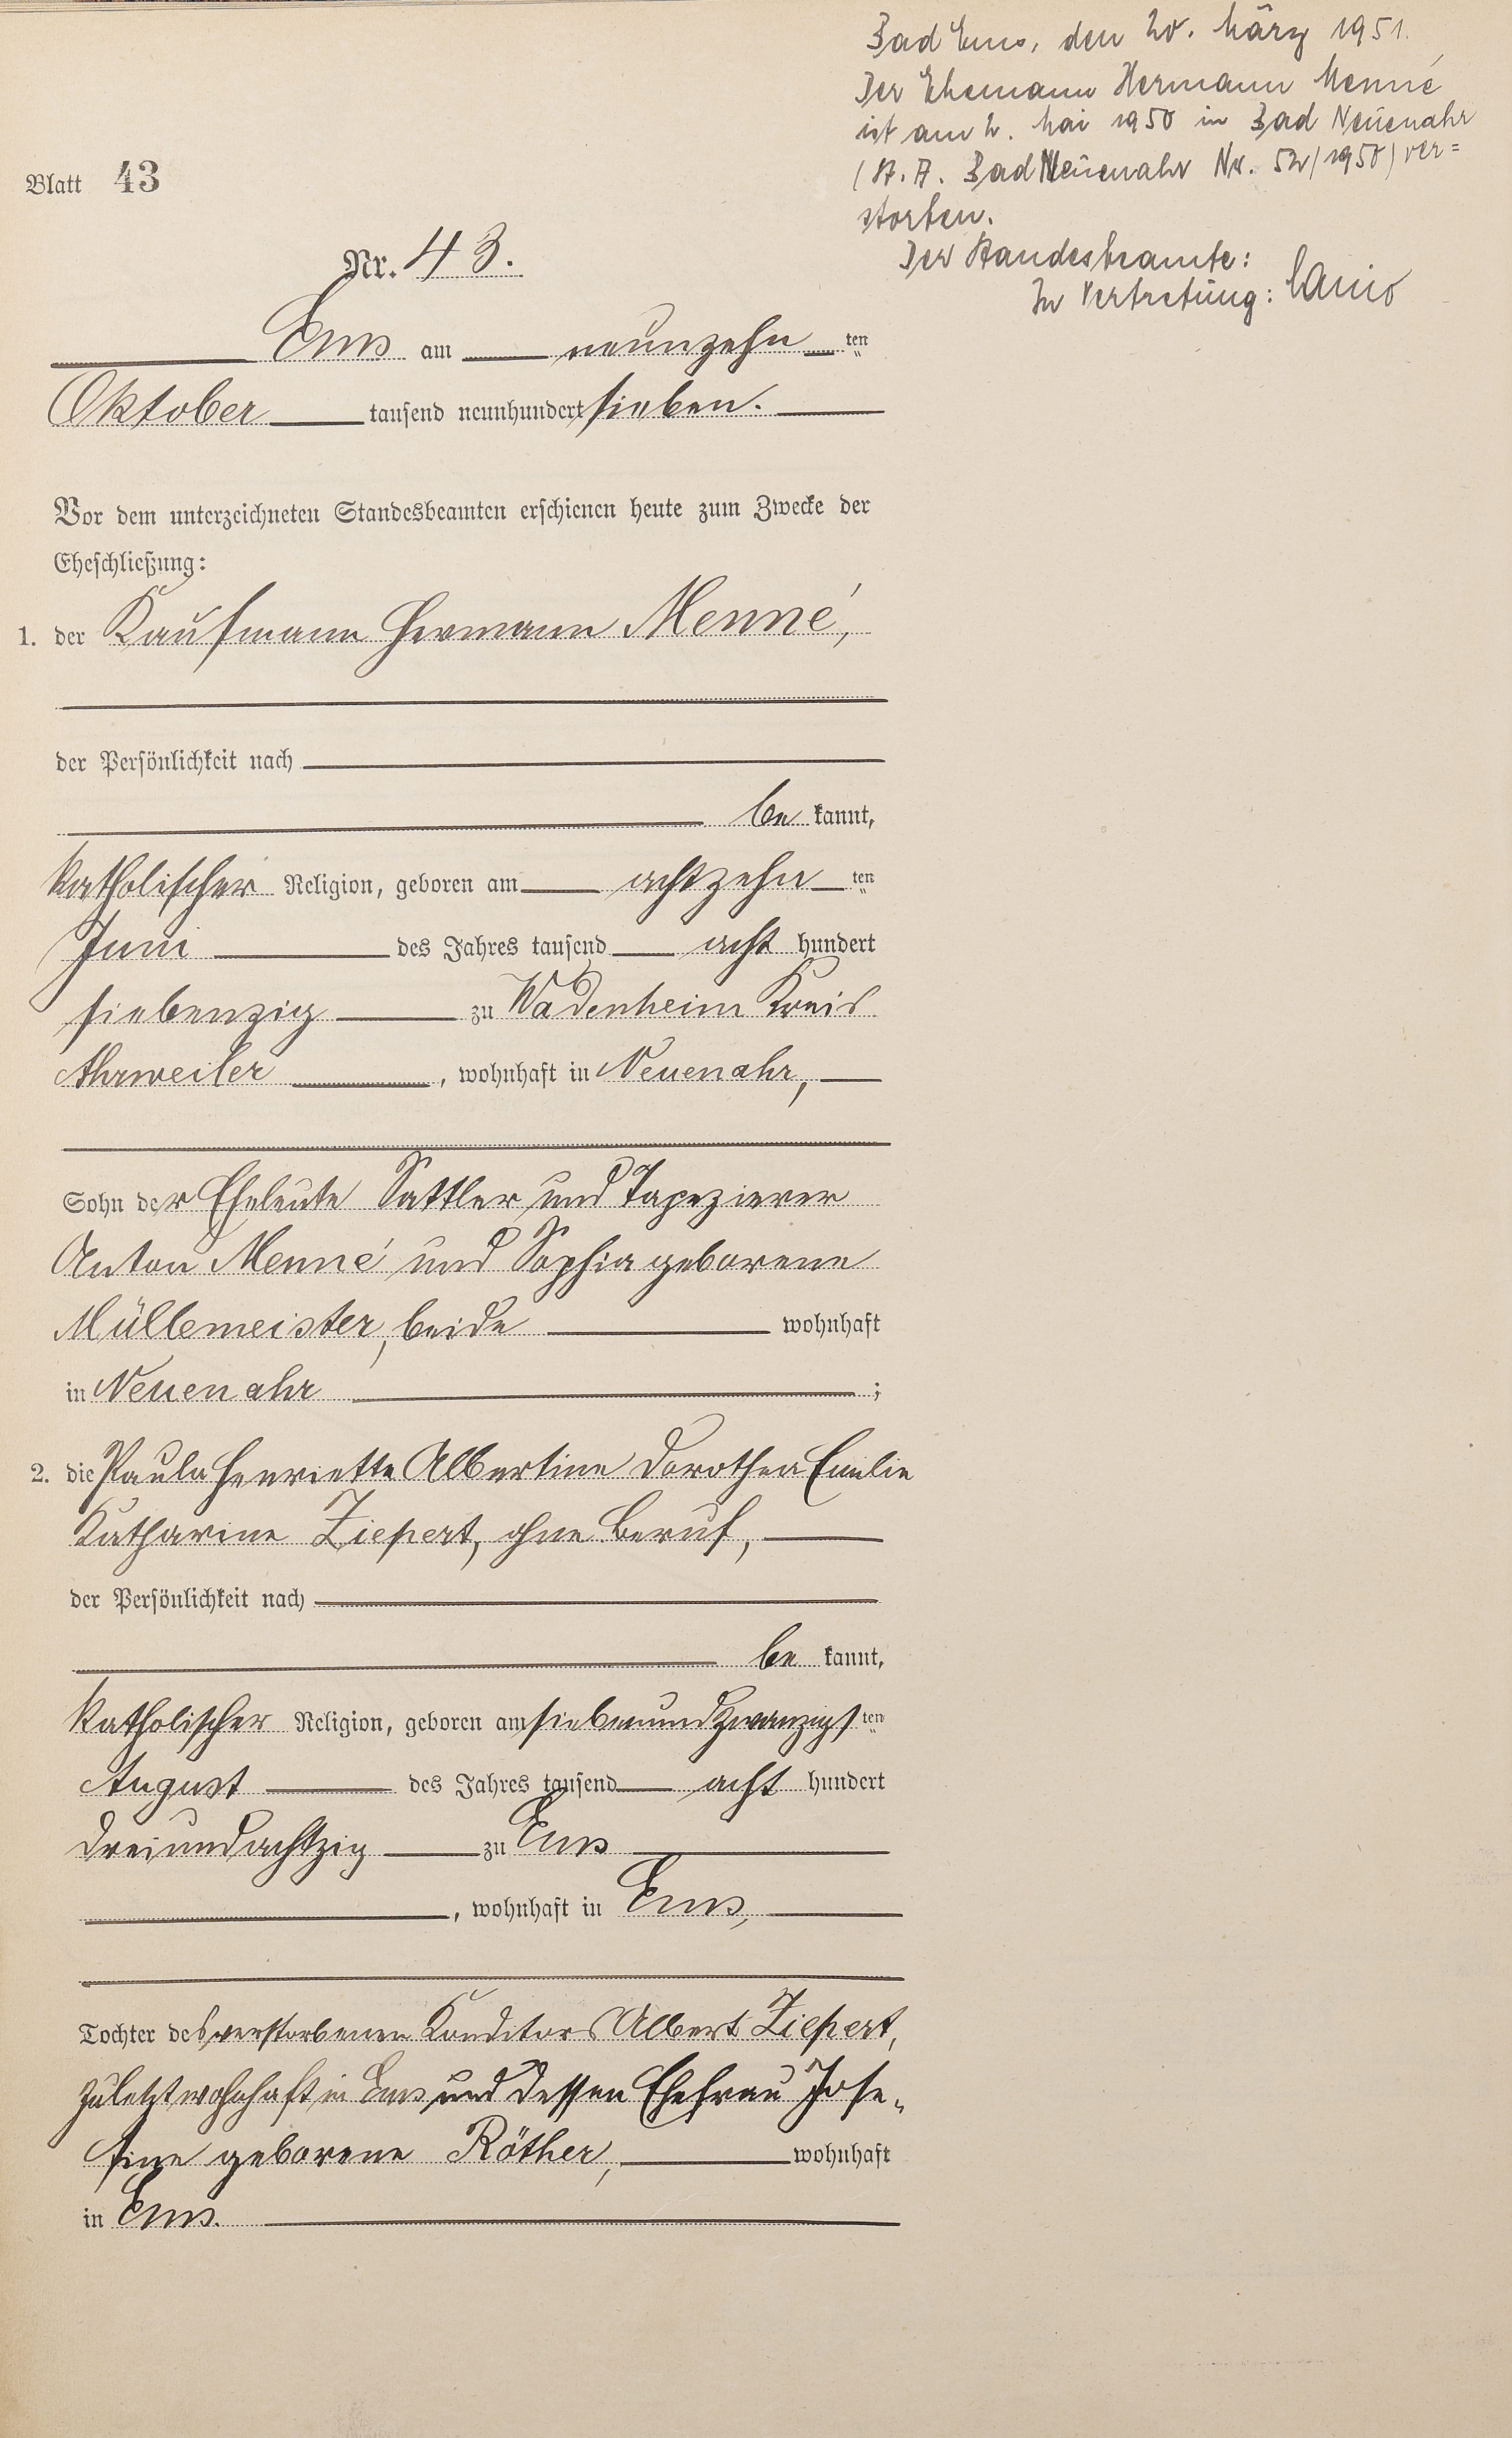 Bad Ems, den 20. März 1951.
Der Ehemann Hermann Menné
ist am 2. Mai 1950 in Bad Neuenahr
(St. A. Bad Neuenahr Nr. 52/1950) ver=
storben.
Der Standesbeamte:
In Vertretung:
Blatt 43
Nr. 43.
Ems am neunzehn ten
Oktober tausend neunhundert sieben.
Vor dem unterzeichneten Standesbeamten erschienen heute zum Zwecke der
Eheschließung:
1. der Kaufmann Hermann Menné,
der Persönlichkeit nach
be kannt,
katholischer Religion, geboren am achtzehn ten
Juni des Jahres tausend acht hundert
siebenzig zu Wadenheim Kreis
Ahrweiler, wohnhaft in Neuenahr,
Sohn der Eheleute Sattler und Tapezierer
Anton Menné und Sophia geborene
Müllemeister, beide wohnhaft
in Neuenahr ;
2. die Paula Henriette Albertine Dorothea Emilie
Katharine Ziepert, ohne Beruf,
der Persönlichkeit nach
be kannt,
katholischer Religion, geboren am siebenundzwanzigs ten
August des Jahres tausend acht hundert
dreiundachtzig zu Ems
, wohnhaft in Ems,
Tochter des verstorbenen Konditors Albert Ziepert,
zuletzt wohnhaft in Ems und dessen Ehefrau Jose-
fine geborene Röther, wohnhaft
in Ems.